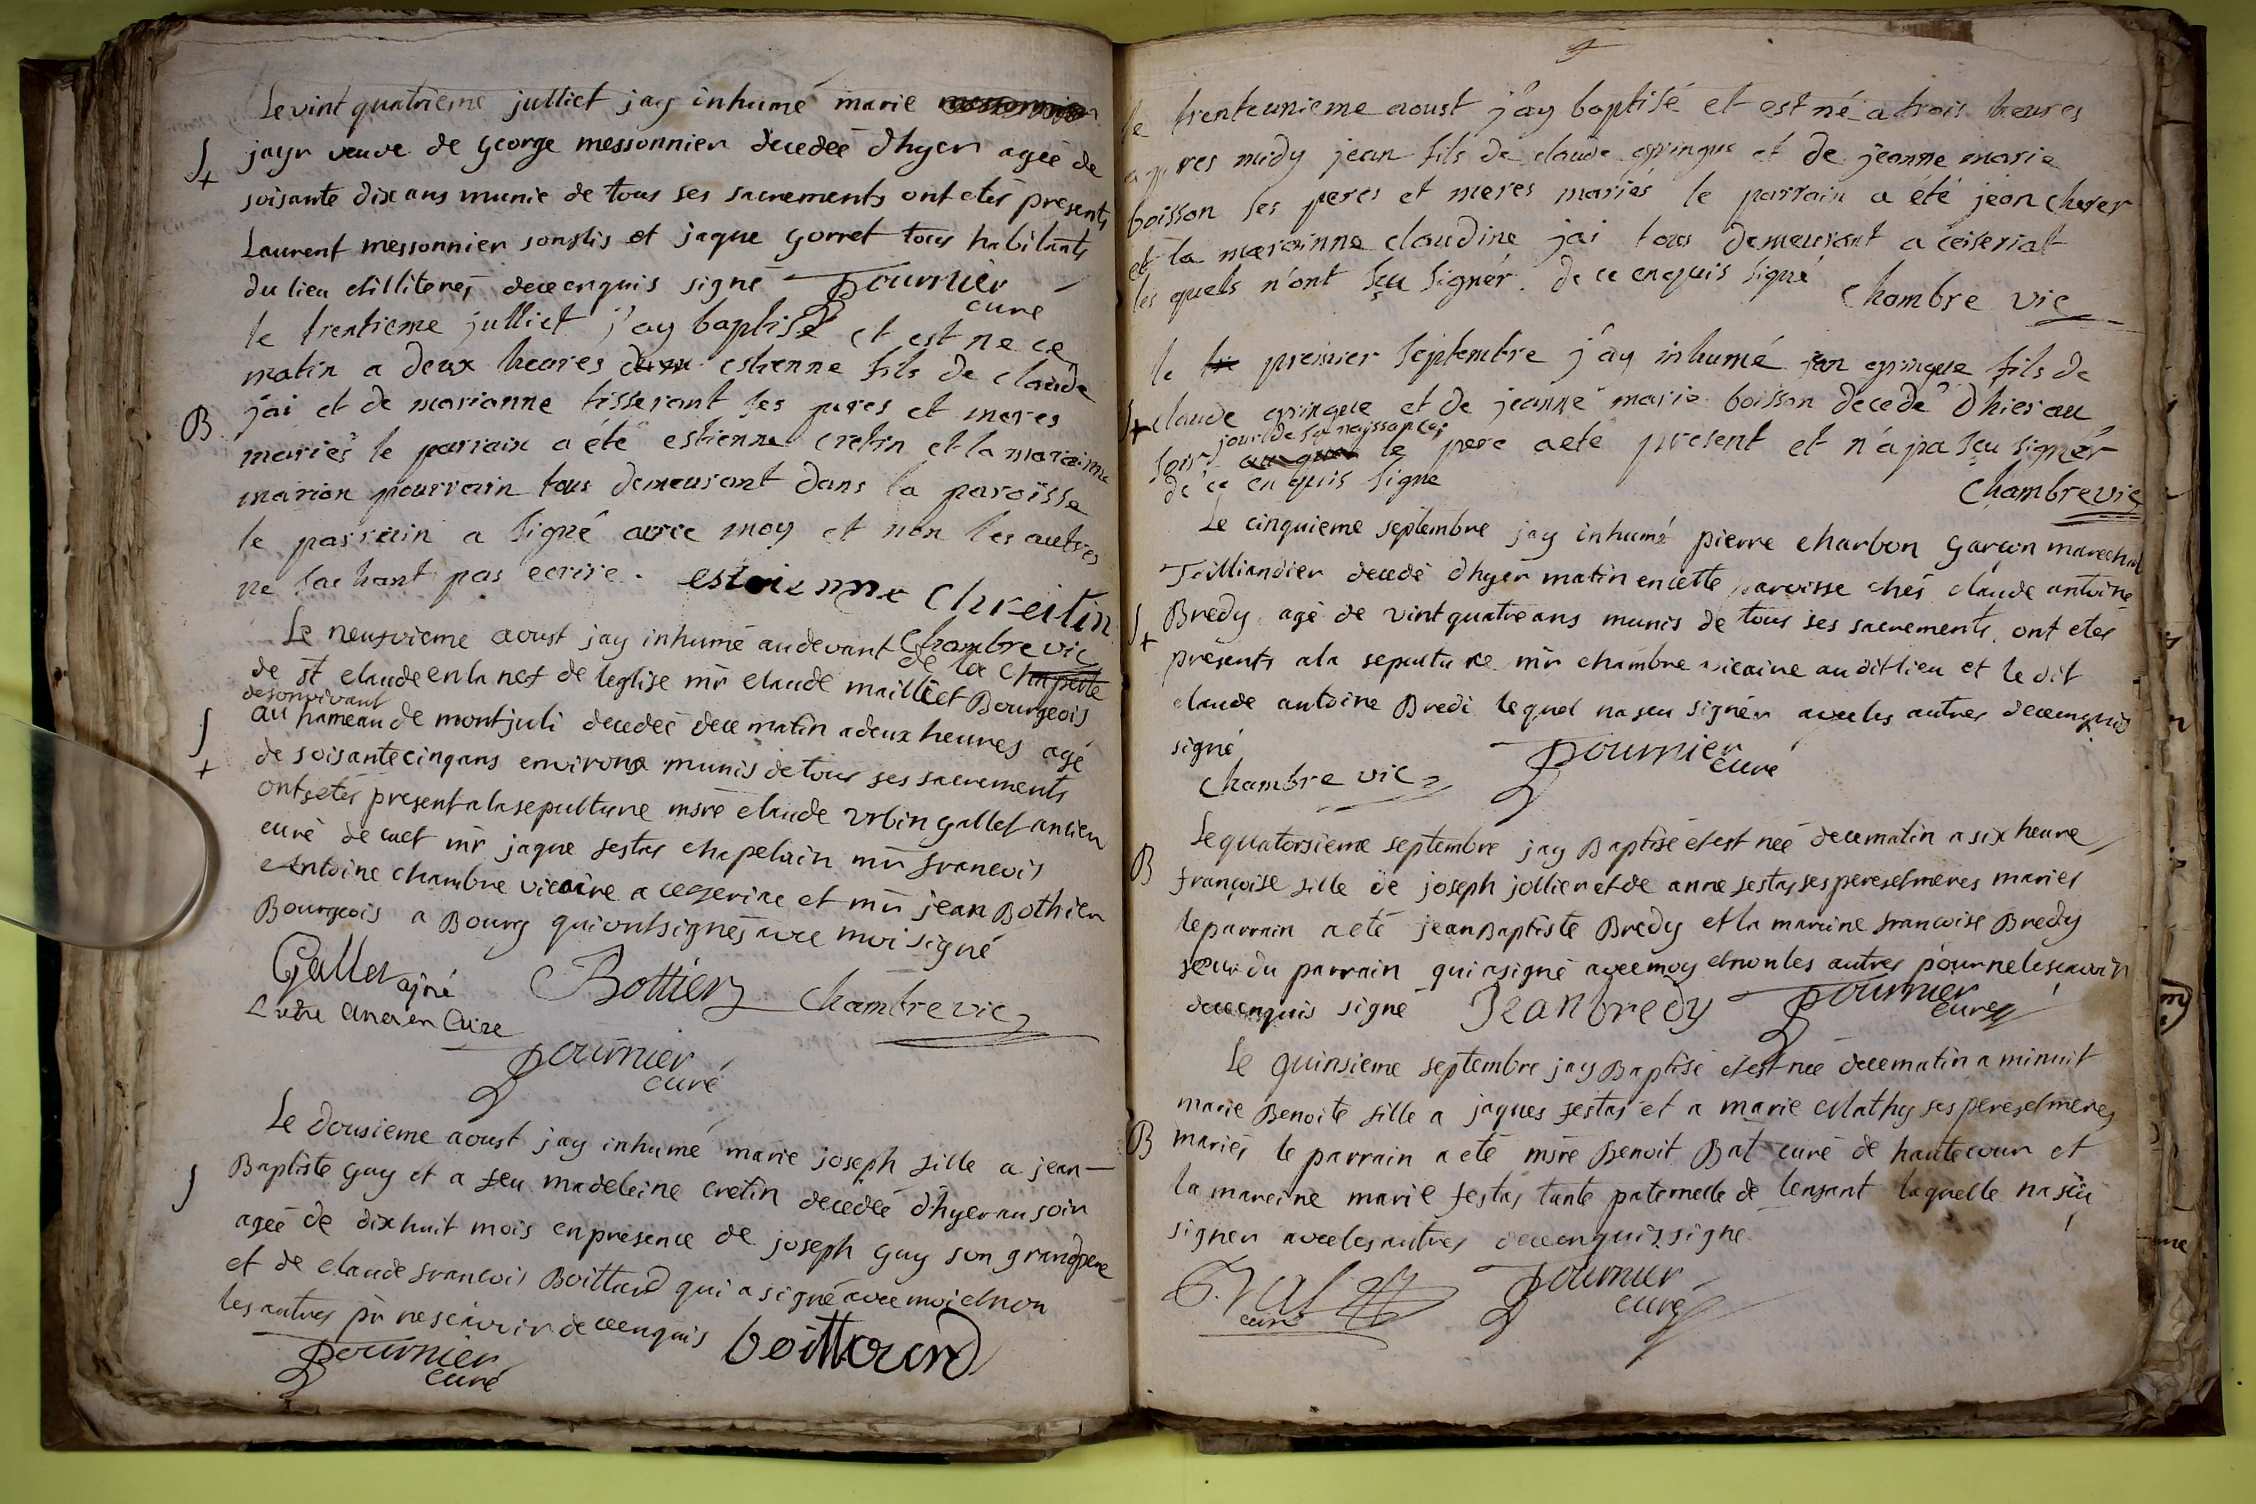 Le vint quatrieme julliet jay inhumé marie
jayr veuve de george messonnier decedéé dhyer agéé de
soisante dix ans munie de tous ses sacrements ont etés présents
Laurent messonnier son fils et jaque gorret tous habitants
du lieu et illiterés dece enquis signé fournier
curé
le trentieme julliet j'ay baptisé et est né ce
matin a deux heures estienne fils de claude
jai et de marianne tisserant ses peres et meres
B
mariés le parrain a été estienne cretin et la maraine
marion pourrain tous demeurant dans la paroisse
le parrain a signé avec moy et non les autres
ne sachant pas ecrire. estoienne Chreitin
chambre vic
Le neufvieme aoust jay inhumé audevant de la chapelle
de st claude en la nef de leglise mr claude mailliet Bourgeois
de son vivant
au hameau de montjuli decedéé dece matin a deux heures agé
de soisante cinq ans environs munis de tous ses sacrements
ont etés present a la sepulture msre claude urbin gallet ancien
curé de mr jaque festas chapelain mr francois
antoine chambre vicaire a ceyseriac et mr jean Bothier
Bourgeois a Bourg qui ont signés avec moi signé
Gallet ainé
Bottier chambre vic
ancien Cure
fournier
curé
Le dousieme aoust jay inhumé marie joseph fille a jean
Baptiste guy et a feu madeleine cretin decedéé d'hyer au soir
agéé de dix huit mois en présence de joseph guy son grandpere
et de claude francois Boittard qui a signé avec moi et non
les autres pr ne scavoir de ce enquis boittourd
fournier
curé
le trenteunieme aoust j'ay baptisé et est né a trois heures
apres midy jean fils de claude epingue et de jeanne marie
boisson ses peres et meres mariés le parrain a été jean
et la maroinne claudine jai tous demeurant a ceiseriat
les quels n'ont sçu signér. de ce enquis signé
chambre vic
le premier septembre j'ay inhumé jean epingue fils de
claude epingue et de jeanne marie boisson decedé d'hier au
jour de sa naissance,
soir le pere a eté present et n'a pa sçu signér
de ce enquis signé
chambre vic
Le cinquieme septembre jay inhumé pierre charbon garçon marechal
Taillandier decedé dhyer matin en cette paroisse chés claude antoine
Bredy agé de vint quatre ans munis de tous ses sacrements. ont etés
présents a la sepulture mr chambre vicaire au dit lieu et le dit
claude antoine Bredi lequel na sçu signér avec les autres de ce enquis
signé
chambre vic
fournier
curé
Le quatorsieme septembre jay Baptisé et est néé de ce matin a six heure
B
françoise fille de joseph jollier et de anne festas ses peres et méres mariés
le parrain a eté jean Baptiste Bredy et la maraine francoise Bredy
seur du parrain qui a signé avec moy et non les autres pour ne le scavoir
de ce enquis signé Jeanbredy fournier
curé
Le quinsieme septembre jay Baptisé et est néé de ce matin a minuit
marie Benoite fille a jaques festas et a marie Mathy ses peres et meres
B
mariés le parrain a eté msre Benoit Bal curé de hautecour et
la mareine marie festas tante paternelle de lenfant laquelle na sçu
signer avec les autres de ce enquis signé
fournier
curé
curé